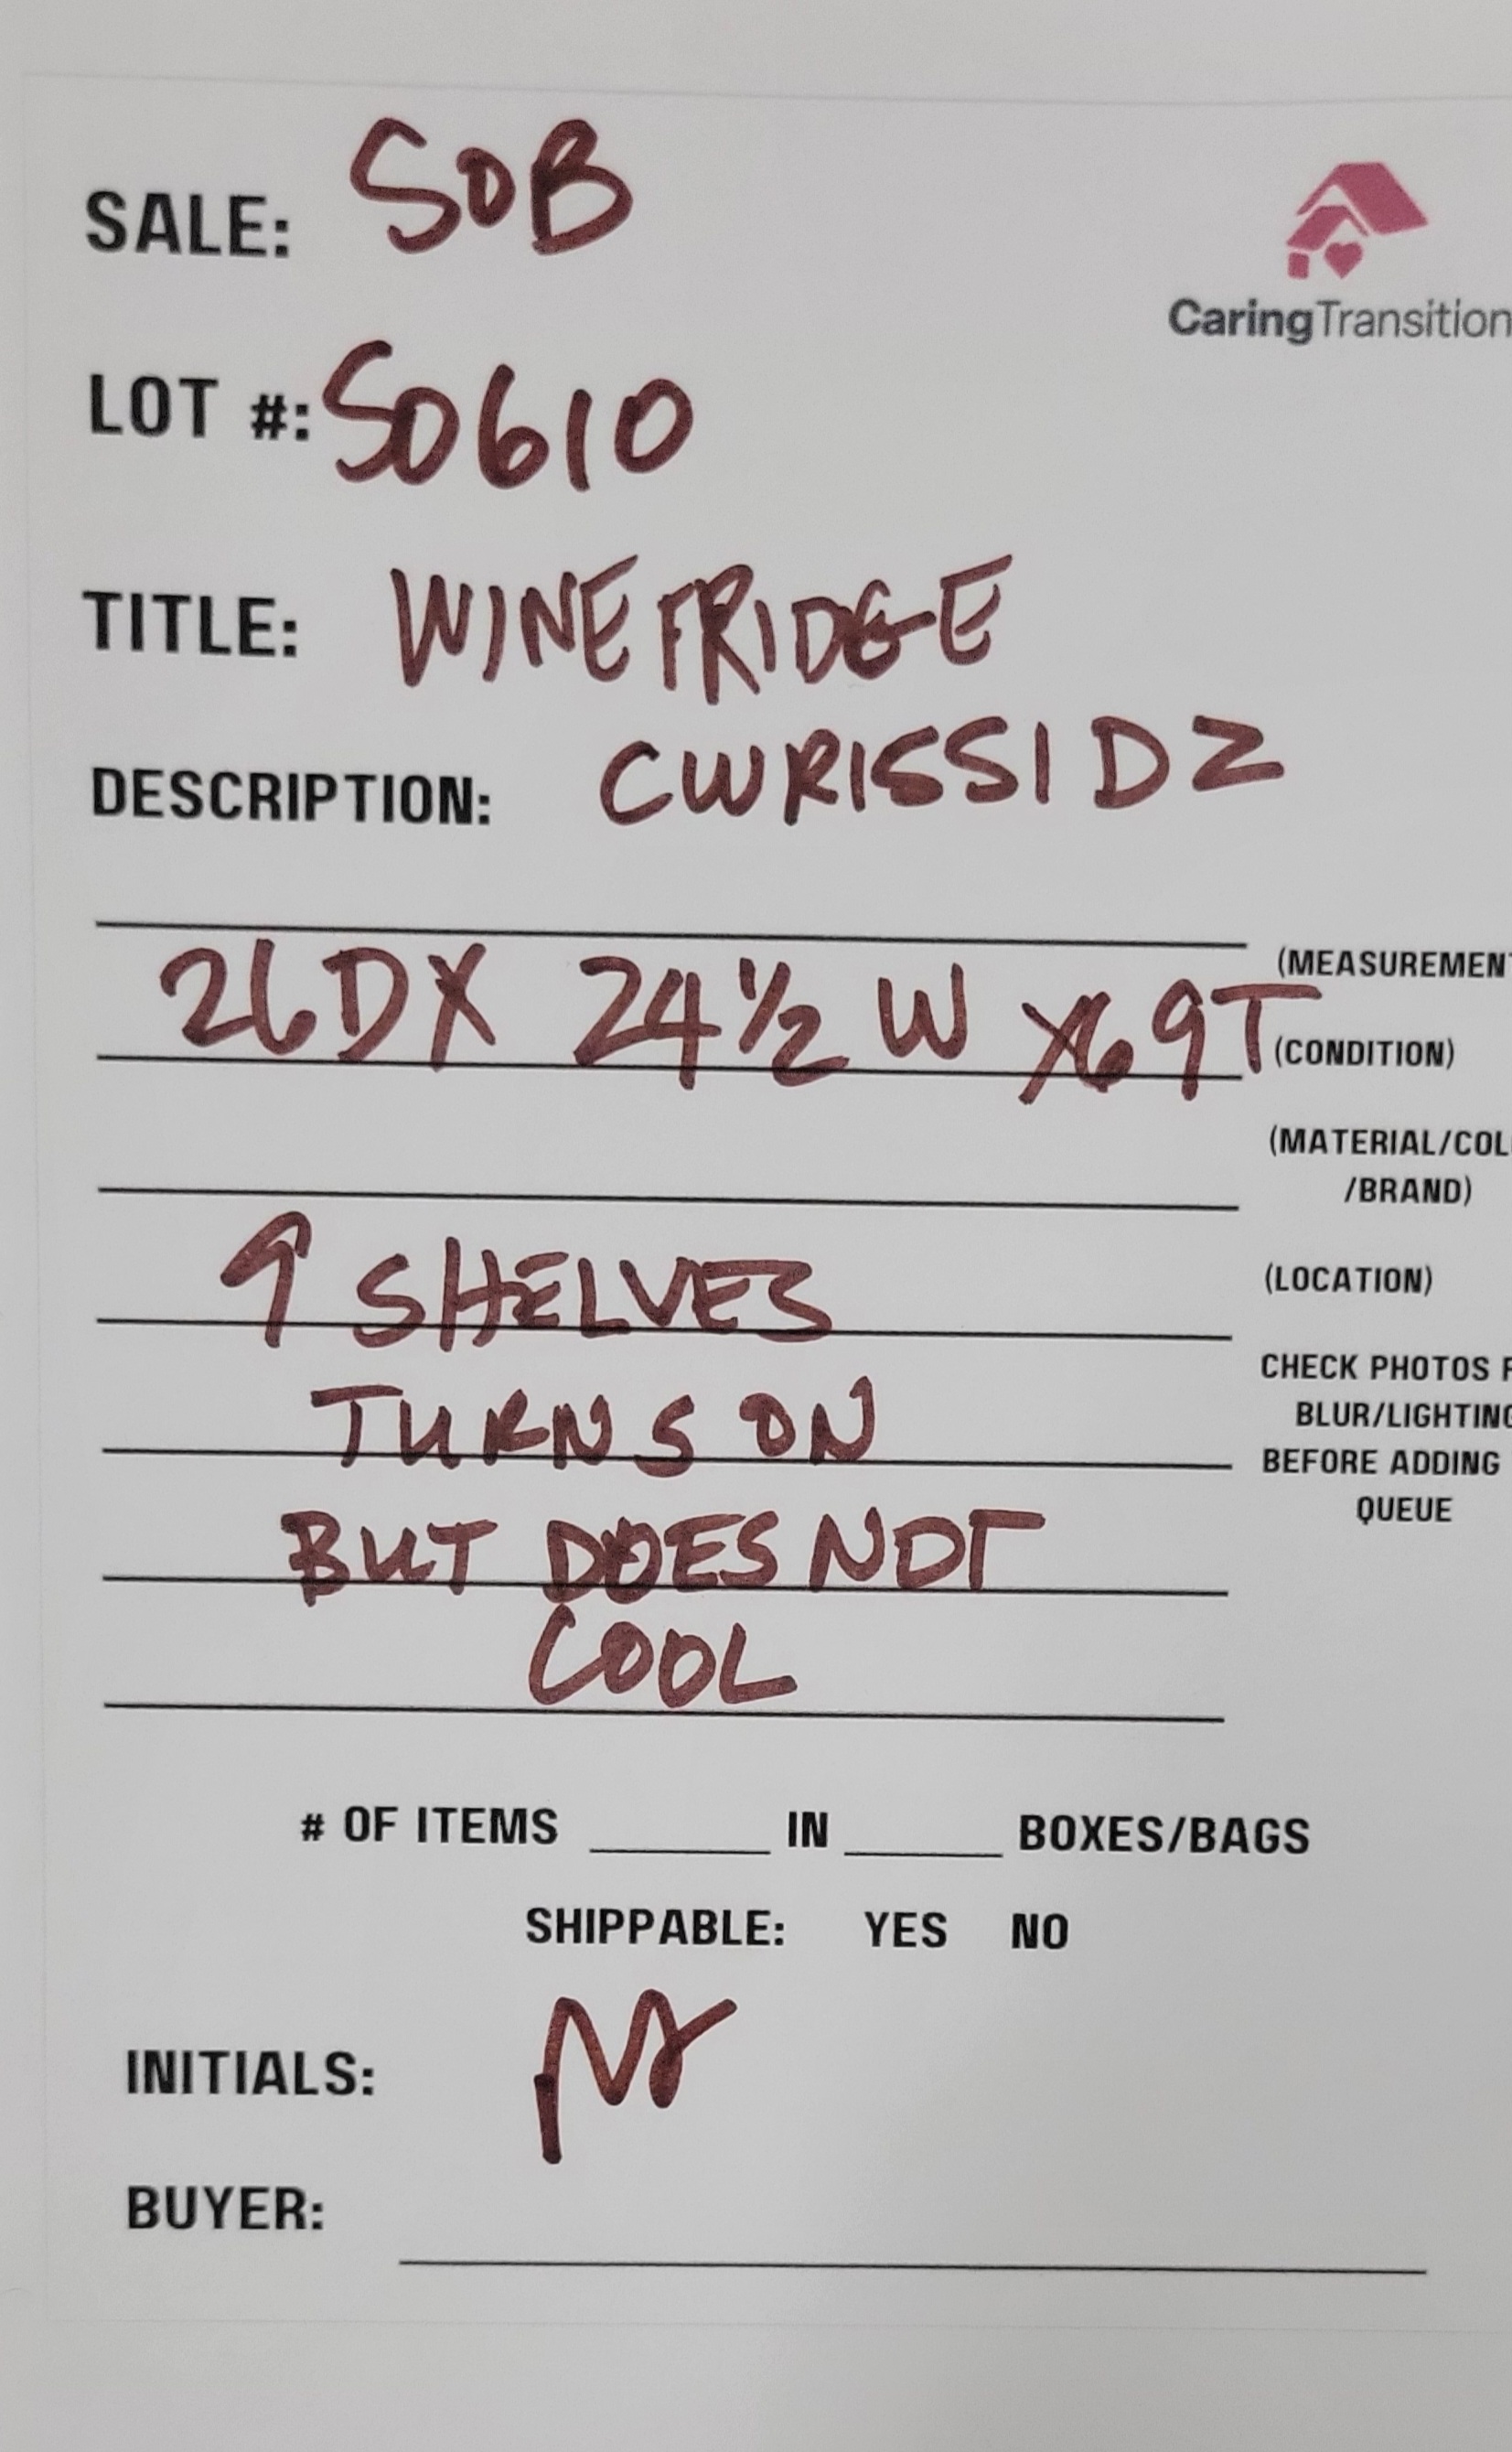 SALE: SOB
CaringTransition
LOT #: S0610
TITLE: WINE FRIDGE
DESCRIPTION: CWR1551DZ
(MEASUREMENT
26DX 24½ W X69T
(CONDITION)
(MATERIAL/COL
/BRAND)
9 SHELVES
(LOCATION)
TURNS ON
CHECK PHOTOS F
BLUR/LIGHTING
BEFORE ADDING
QUEUE
BUT DOES NOT
COOL
# OF ITEMS ______ IN ______ BOXES/BAGS
SHIPPABLE: YES NO
INITIALS:
BUYER: